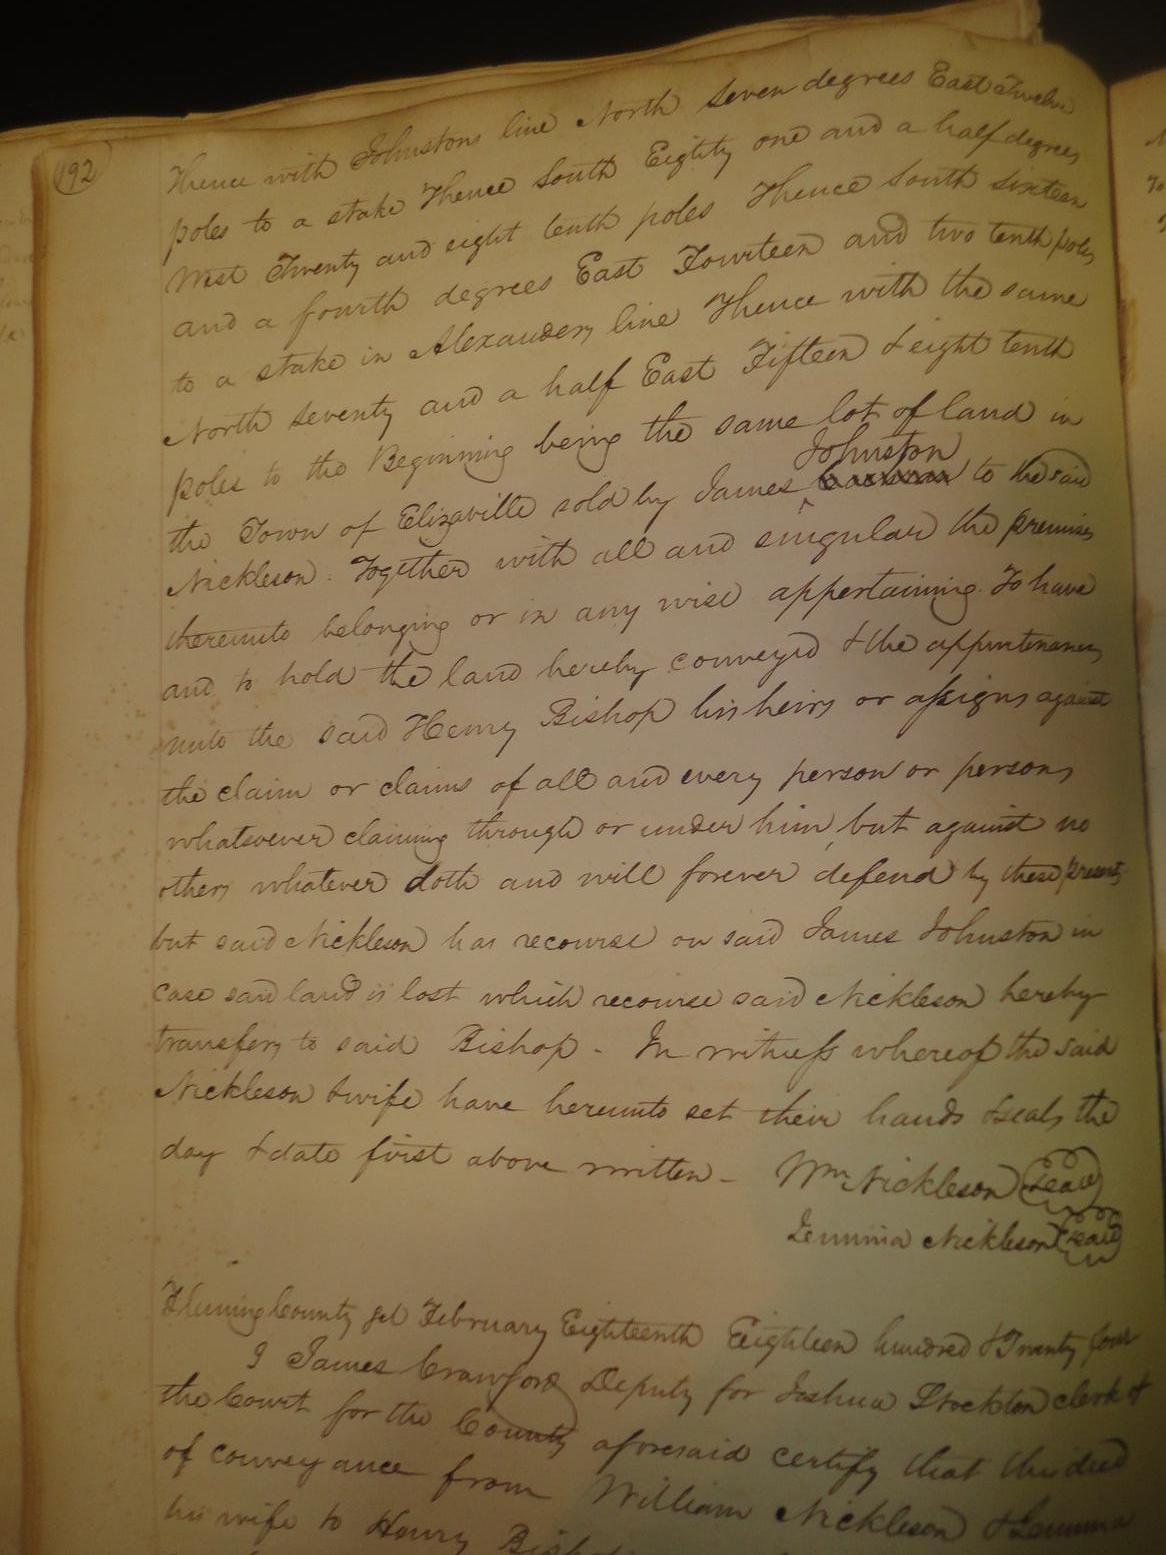 192
Thence with Johnstons line North seven degrees East Twelve
poles to a stake Thence South Eighty one and a half degrees
West Twenty and eight tenth poles Thence South sixteen
and a fourth degrees East Fourteen and two tenth poles
to a stake in Alexanders line Thence with the same
North seventy and a half East Fifteen & eight tenth
poles to the Beginning being the same lot of land in
Johnston
the Town of Elizaville sold by James to the said
Nickleson. Together with all and singular the premises
thereunto belonging or in any wise appertaining. To have
and to hold the land hereby conveyed & the appurtenances
unto the said Henry Bishop his heirs or assigns against
the claim or claims of all and every person or persons
whatsoever claiming through or under him, but against no
others whatever doth and will forever defend by these presents
but said Nickleson has recourse on said James Johnston in
case said land is lost which recourse said Nickleson hereby
transfers to said Bishop - In witness whereof the said
Nickleson & wife have hereunto set their hands & seals the
day & date first above written - Wm Nickleson Seal
Jemima Nickleson Seal
Fleming County sct February Eighteenth Eighteen hundred & Twenty four
I James Crawford Deputy for Joshua Stockton clerk of
the Court for the County aforesaid certify that this deed
of conveyance from William Nickleson & Jemima
his wife to Henry Bishop